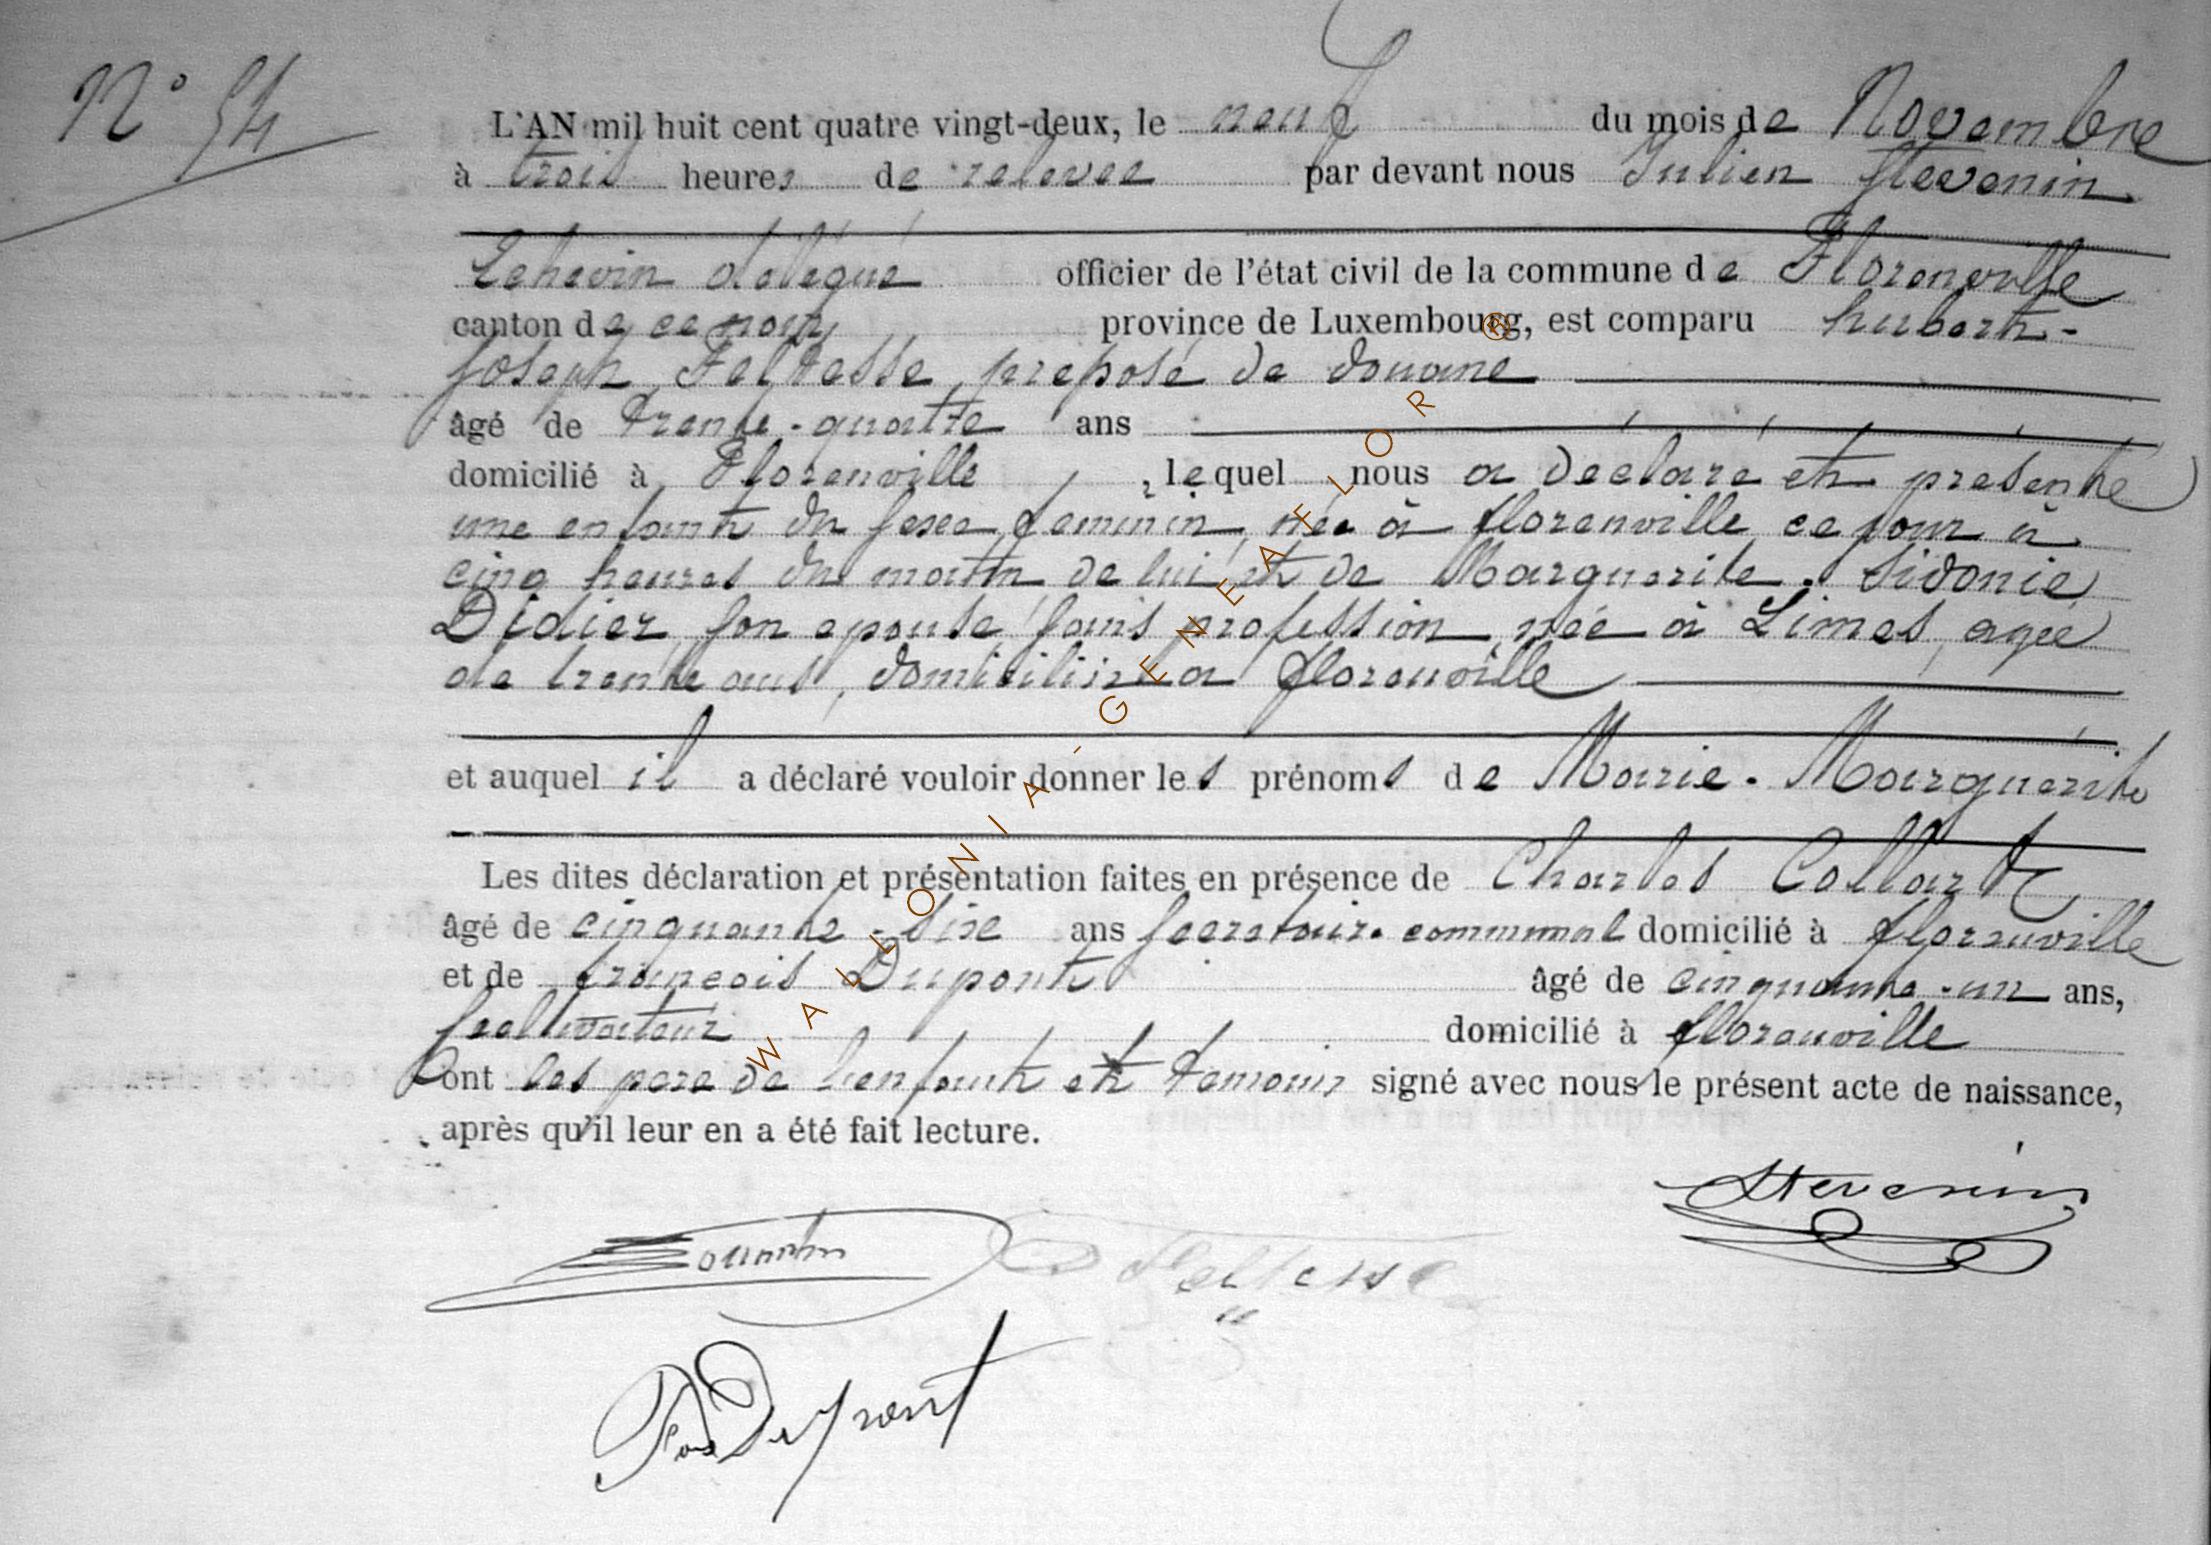 N° 54
L'AN mil huit cent quatre vingt-deux, le neuf du mois de Novembre
à trois heures de relevee par devant nous Julien Stevenin
Echevin délégué officier de l'état civil de la commune de Florenville
canton de ce nom province de Luxembourg, est comparu hubert-
Joseph Feltesse, preposé de douane
âgé de trente-quatre ans
domicilié à Florenville, lequel nous a déclaré et présenté
une enfant du sexe feminin, née à florenville ce jour à
cinq heures du matin de lui et de Marguerite-Sidonie
Didier, son epouse sans profession née à Limes, agée
de trente ans, domiciliée a florenville
et auquel il a déclaré vouloir donner les prénoms de Marie-Marguerite
Les dites déclaration et présentation faites en présence de Charles Collart
âgé de cinquante-six ans secretaire communal domicilié à florenville
et de françois Dupont âgé de cinquante-un ans,
domicilié à florenville
ont les pere de l'enfant et temoins signé avec nous le présent acte de naissance,
après qu'il leur en a été fait lecture.
Stevenin
Feltesse
Dupont
WALLONIA-GENEAFLOR®